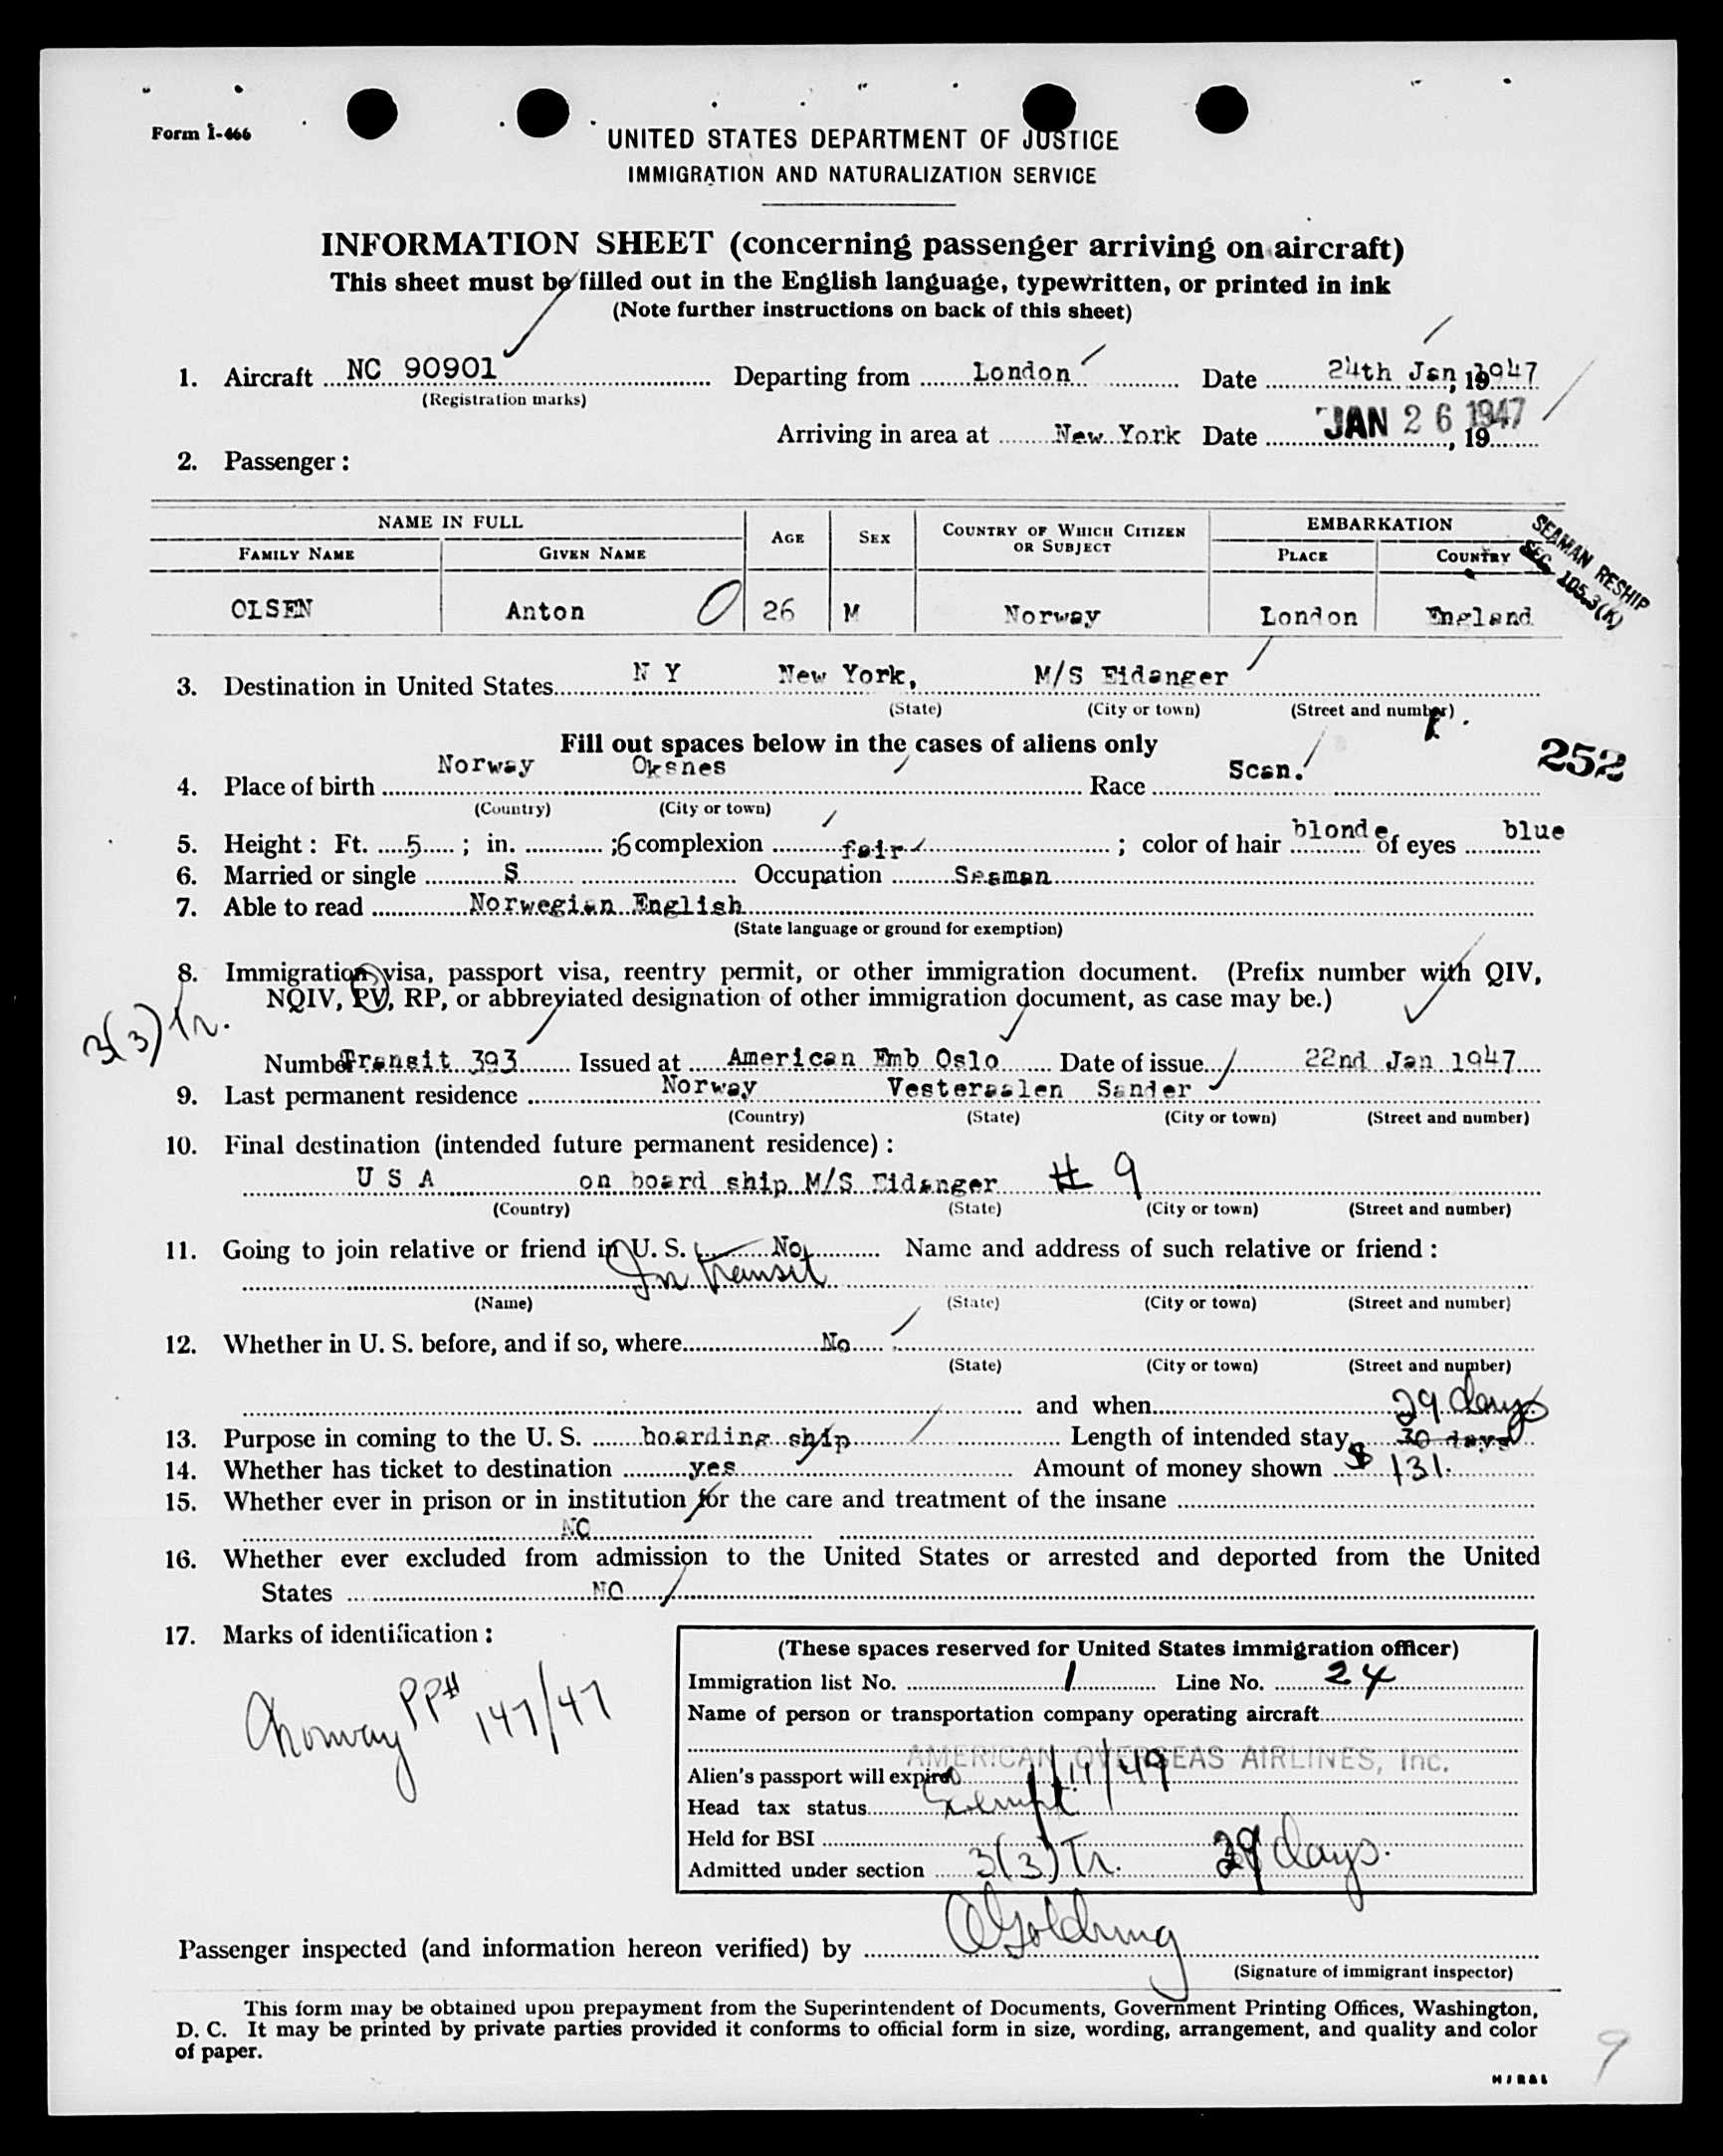 Form I-466
UNITED STATES DEPARTMENT OF JUSTICE
IMMIGRATION AND NATURALIZATION SERVICE
INFORMATION SHEET (concerning passenger arriving on aircraft)
This sheet must be filled out in the English language, typewritten, or printed in ink
(Note further instructions on back of this sheet)
1. Aircraft NC 90901 Departing from London Date 24th Jan, 1947
(Registration marks)
Arriving in area at New York Date JAN 26 1947, 19
2. Passenger:
NAME IN FULL AGE SEX COUNTRY OF WHICH CITIZEN OR SUBJECT EMBARKATION
FAMILY NAME GIVEN NAME PLACE COUNTRY
SEAMAN RESHIP
SEC. 105.3(K)
OLSEN Anton 0 26 M Norway London England
3. Destination in United States N Y New York, M/S Eidanger
(State) (City or town) (Street and number)
Fill out spaces below in the cases of aliens only
252
4. Place of birth Norway Oksnes Race Scan.
(Country) (City or town)
5. Height: Ft. 5; in. ;6 complexion fair; color of hair blonde of eyes blue
6. Married or single S Occupation Seaman
7. Able to read Norwegian English
(State language or ground for exemption)
8. Immigration visa, passport visa, reentry permit, or other immigration document. (Prefix number with QIV,
NQIV, PV, RP, or abbreviated designation of other immigration document, as case may be.)
3(3) Tr.
Number Transit 393 Issued at American Emb Oslo Date of issue 22nd Jan 1947
9. Last permanent residence Norway Vesteraalen Sander
(Country) (State) (City or town) (Street and number)
10. Final destination (intended future permanent residence):
U S A on board ship M/S Eidanger # 9
(Country) (State) (City or town) (Street and number)
11. Going to join relative or friend in U. S. No Name and address of such relative or friend:
In transit
(Name) (State) (City or town) (Street and number)
12. Whether in U. S. before, and if so, where No
(State) (City or town) (Street and number)
and when 29 days
13. Purpose in coming to the U. S. boarding ship Length of intended stay 30 days
14. Whether has ticket to destination yes Amount of money shown $131.
15. Whether ever in prison or in institution for the care and treatment of the insane
NO
16. Whether ever excluded from admission to the United States or arrested and deported from the United
States NO
17. Marks of identification:
Norway PP# 147/47
(These spaces reserved for United States immigration officer)
Immigration list No. 1 Line No. 24
Name of person or transportation company operating aircraft
AMERICAN OVERSEAS AIRLINES, Inc.
Alien's passport will expire 1/14/49
Head tax status Exempt
Held for BSI
Admitted under section 3(3) Tr. 29 days.
Passenger inspected (and information hereon verified) by
(Signature of immigrant inspector)
This form may be obtained upon prepayment from the Superintendent of Documents, Government Printing Offices, Washington,
D. C. It may be printed by private parties provided it conforms to official form in size, wording, arrangement, and quality and color
of paper.
9